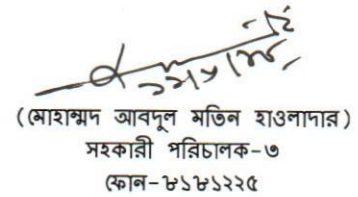 (মোহাম্মদ আবদুল মতিন হাওলাদার)
সহকারী পরিচালক-৩
ফোন-৮১৮১২২৫